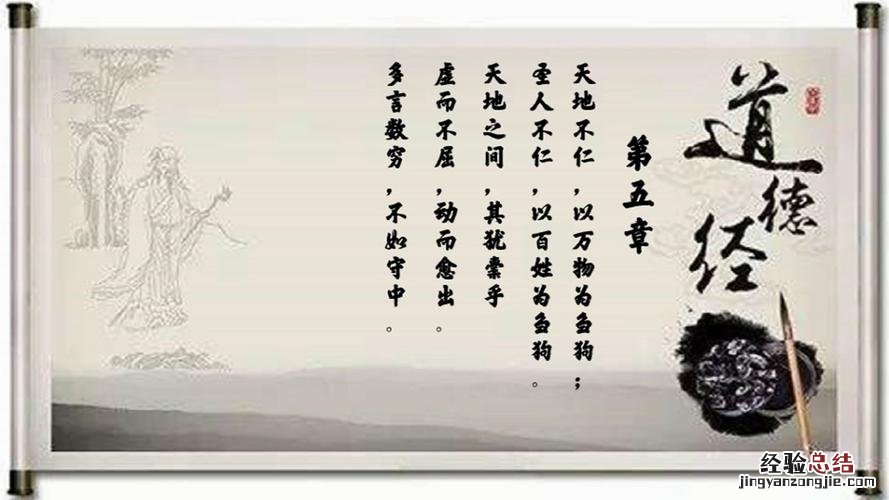 道德经
第五章
天地不仁,以万物为刍狗;
圣人不仁,以百姓为刍狗。
天地之间,其犹橐乎
虚而不屈,动而愈出。
多言数穷,不如守中。
经验总结
jingyanzongjie.com